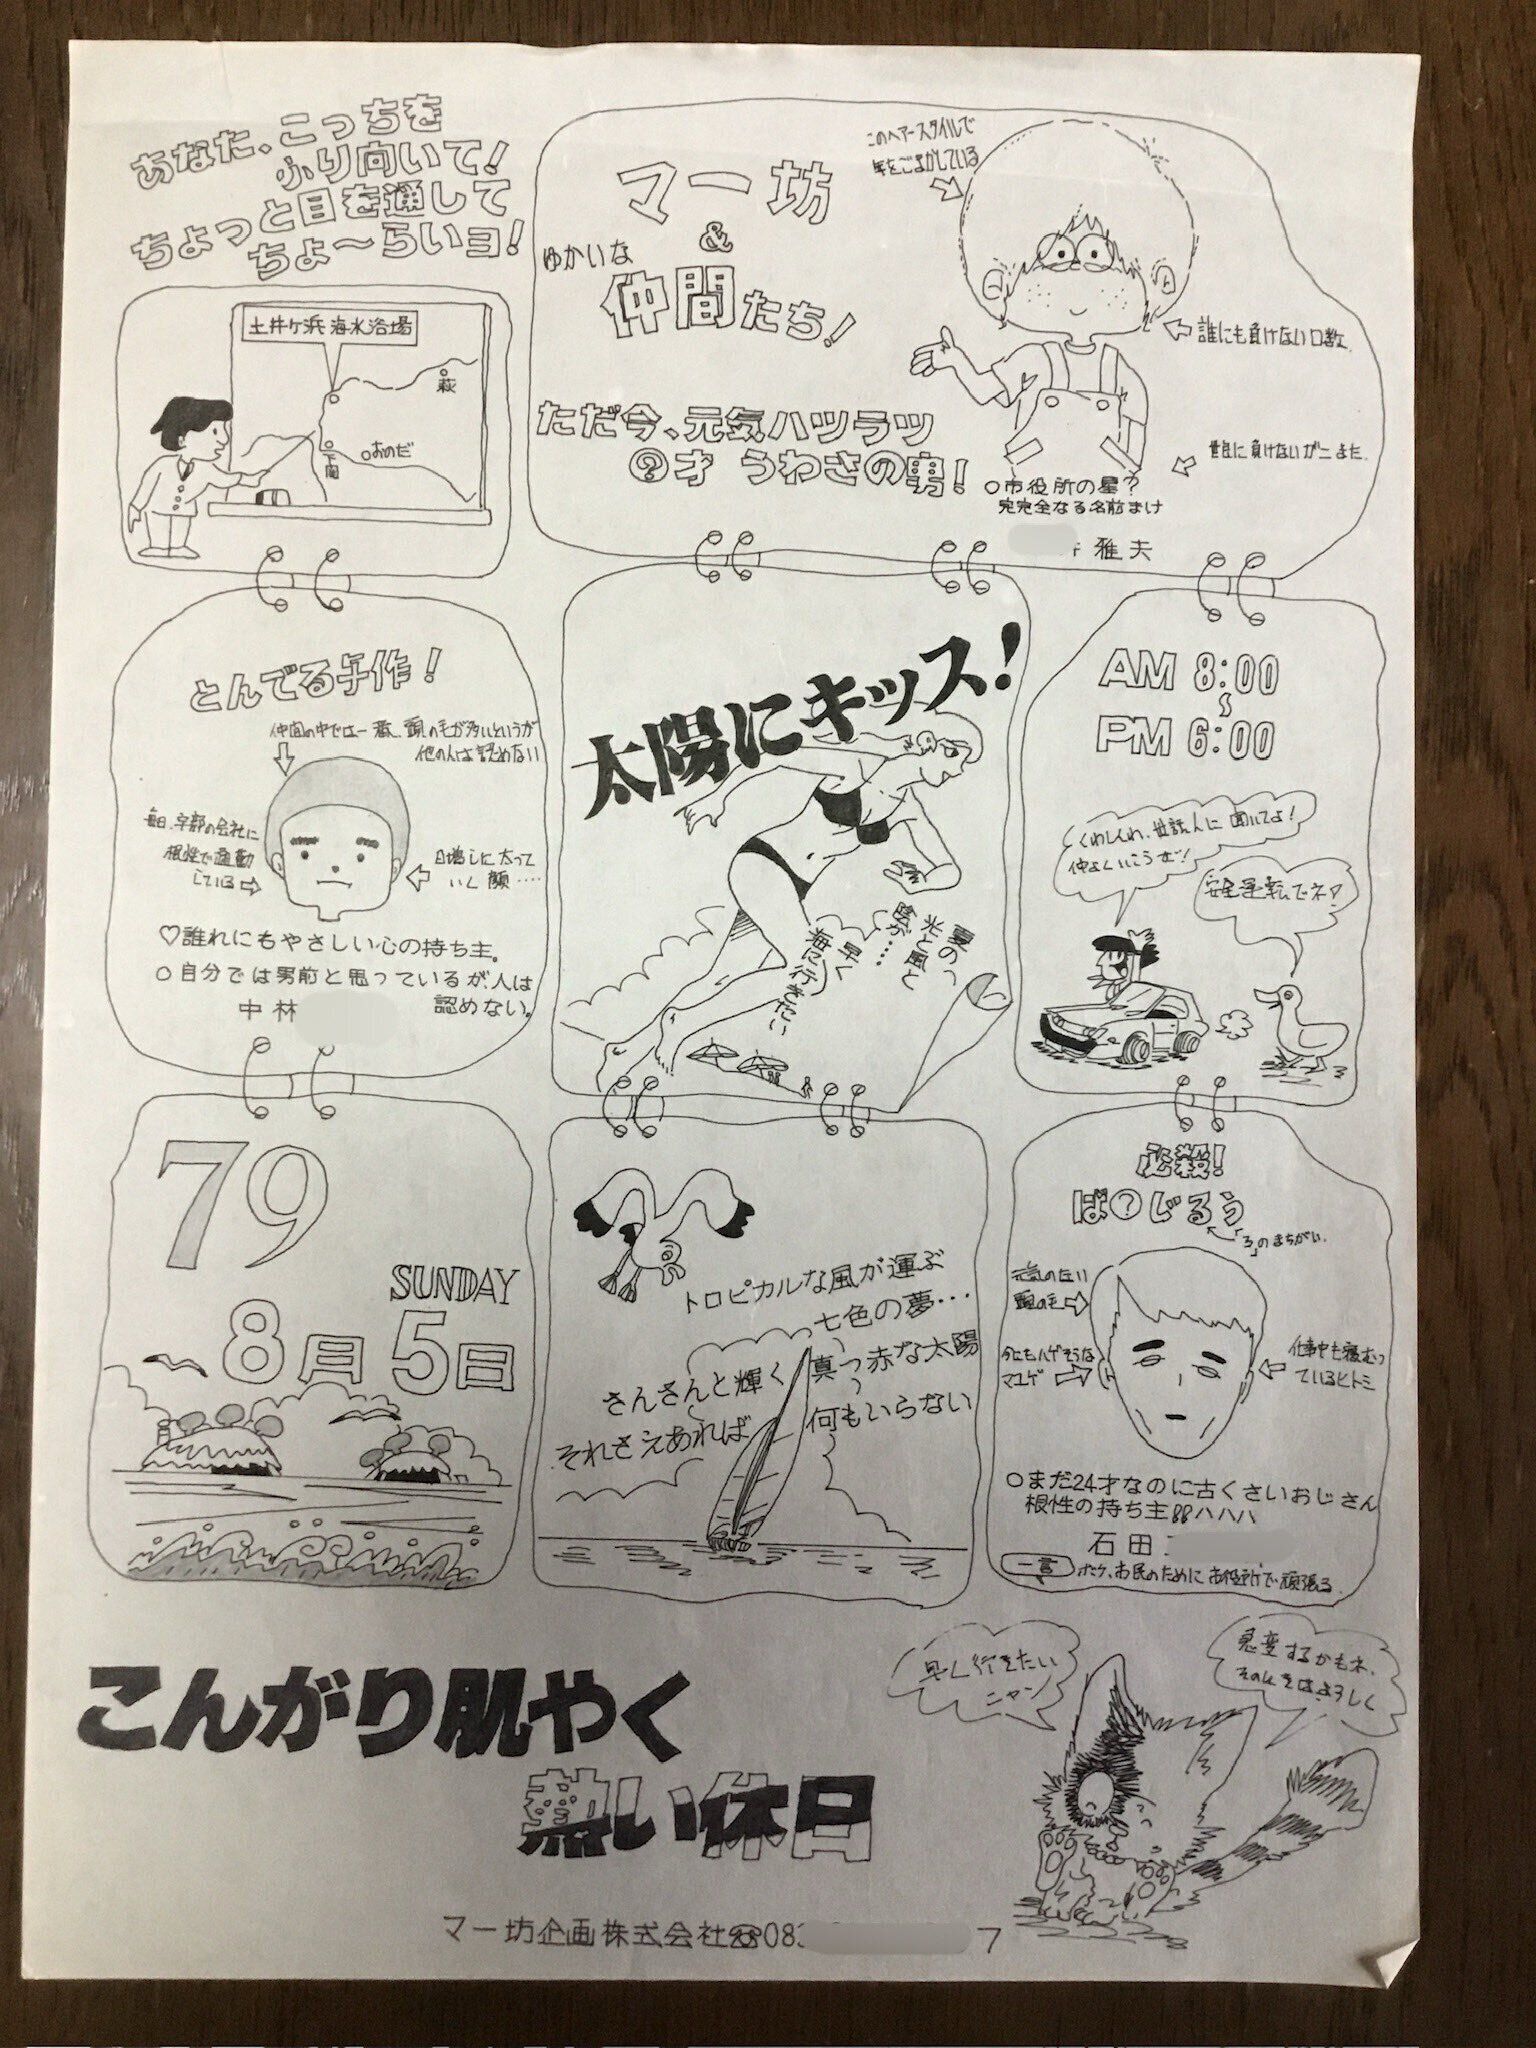 あなた、こっちを
ふり向いて!
ちょっと目を通して
ちょ〜らいヨ!
土井ヶ浜海水浴場
萩
おのだ
下関
マー坊
&
ゆかいな
仲間たち!
このヘアースタイルで
年をごまかしている
誰にも負けない口数
ただ今、元気ハツラツ
?才 うわさの男!
世良に負けないガニまた
○市役所の星?
完完全なる名前まけ
雅夫
とんでる手作!
仲間の中では一番、頭の毛が多いというが
他の人は認めない
毎日、宇部の会社に
根性で通勤
している
日増しに太って
いく顔‥‥
♡誰れにもやさしい心の持ち主。
○自分では男前と思っているが、人は
認めない。
中林
太陽にキッス!
夏の
光と風と
陰が…
早く
海に行きたい
AM 8:00
〜
PM 6:00
くわしくわ、世話人に聞いてよ!
仲よくいこうぜ!
安全運転でネ!
79
SUNDAY
8月5日
トロピカルな風が運ぶ
七色の夢…
さんさんと輝く真っ赤な太陽
それさえあれば 何もいらない
必殺!
ば?じるう
「ろ」のまちがい
元気のない
頭の毛
今にもハゲそうな
マユゲ
仕事中も寝むっ
ているヒトミ
○まだ24才なのに古くさいおじさん
根性の持ち主!!ハハハ
石田
一言 ボク、市民のために市役所で頑張る
こんがり肌やく
熱い休日
早く行きたい
ニャン
急変するかもネ、
そのときはよろしく
マー坊企画株式会社☎08
7